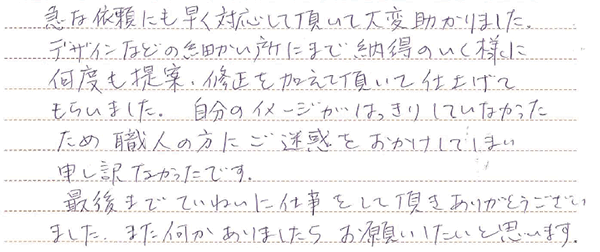 急な依頼にも早く対応して頂いて大変助かりました。
デザインなどの細かい所にまで納得のいく様に
何度も提案・修正を加えて頂いて仕上げて
もらいました。 自分のイメージがはっきりしていなかった
ため職人の方にご迷惑をおかけしてしまい
申し訳なかったです。
最後までていねいに仕事をして頂きありがとうござい
ました。また何かありましたらお願いしたいと思います。